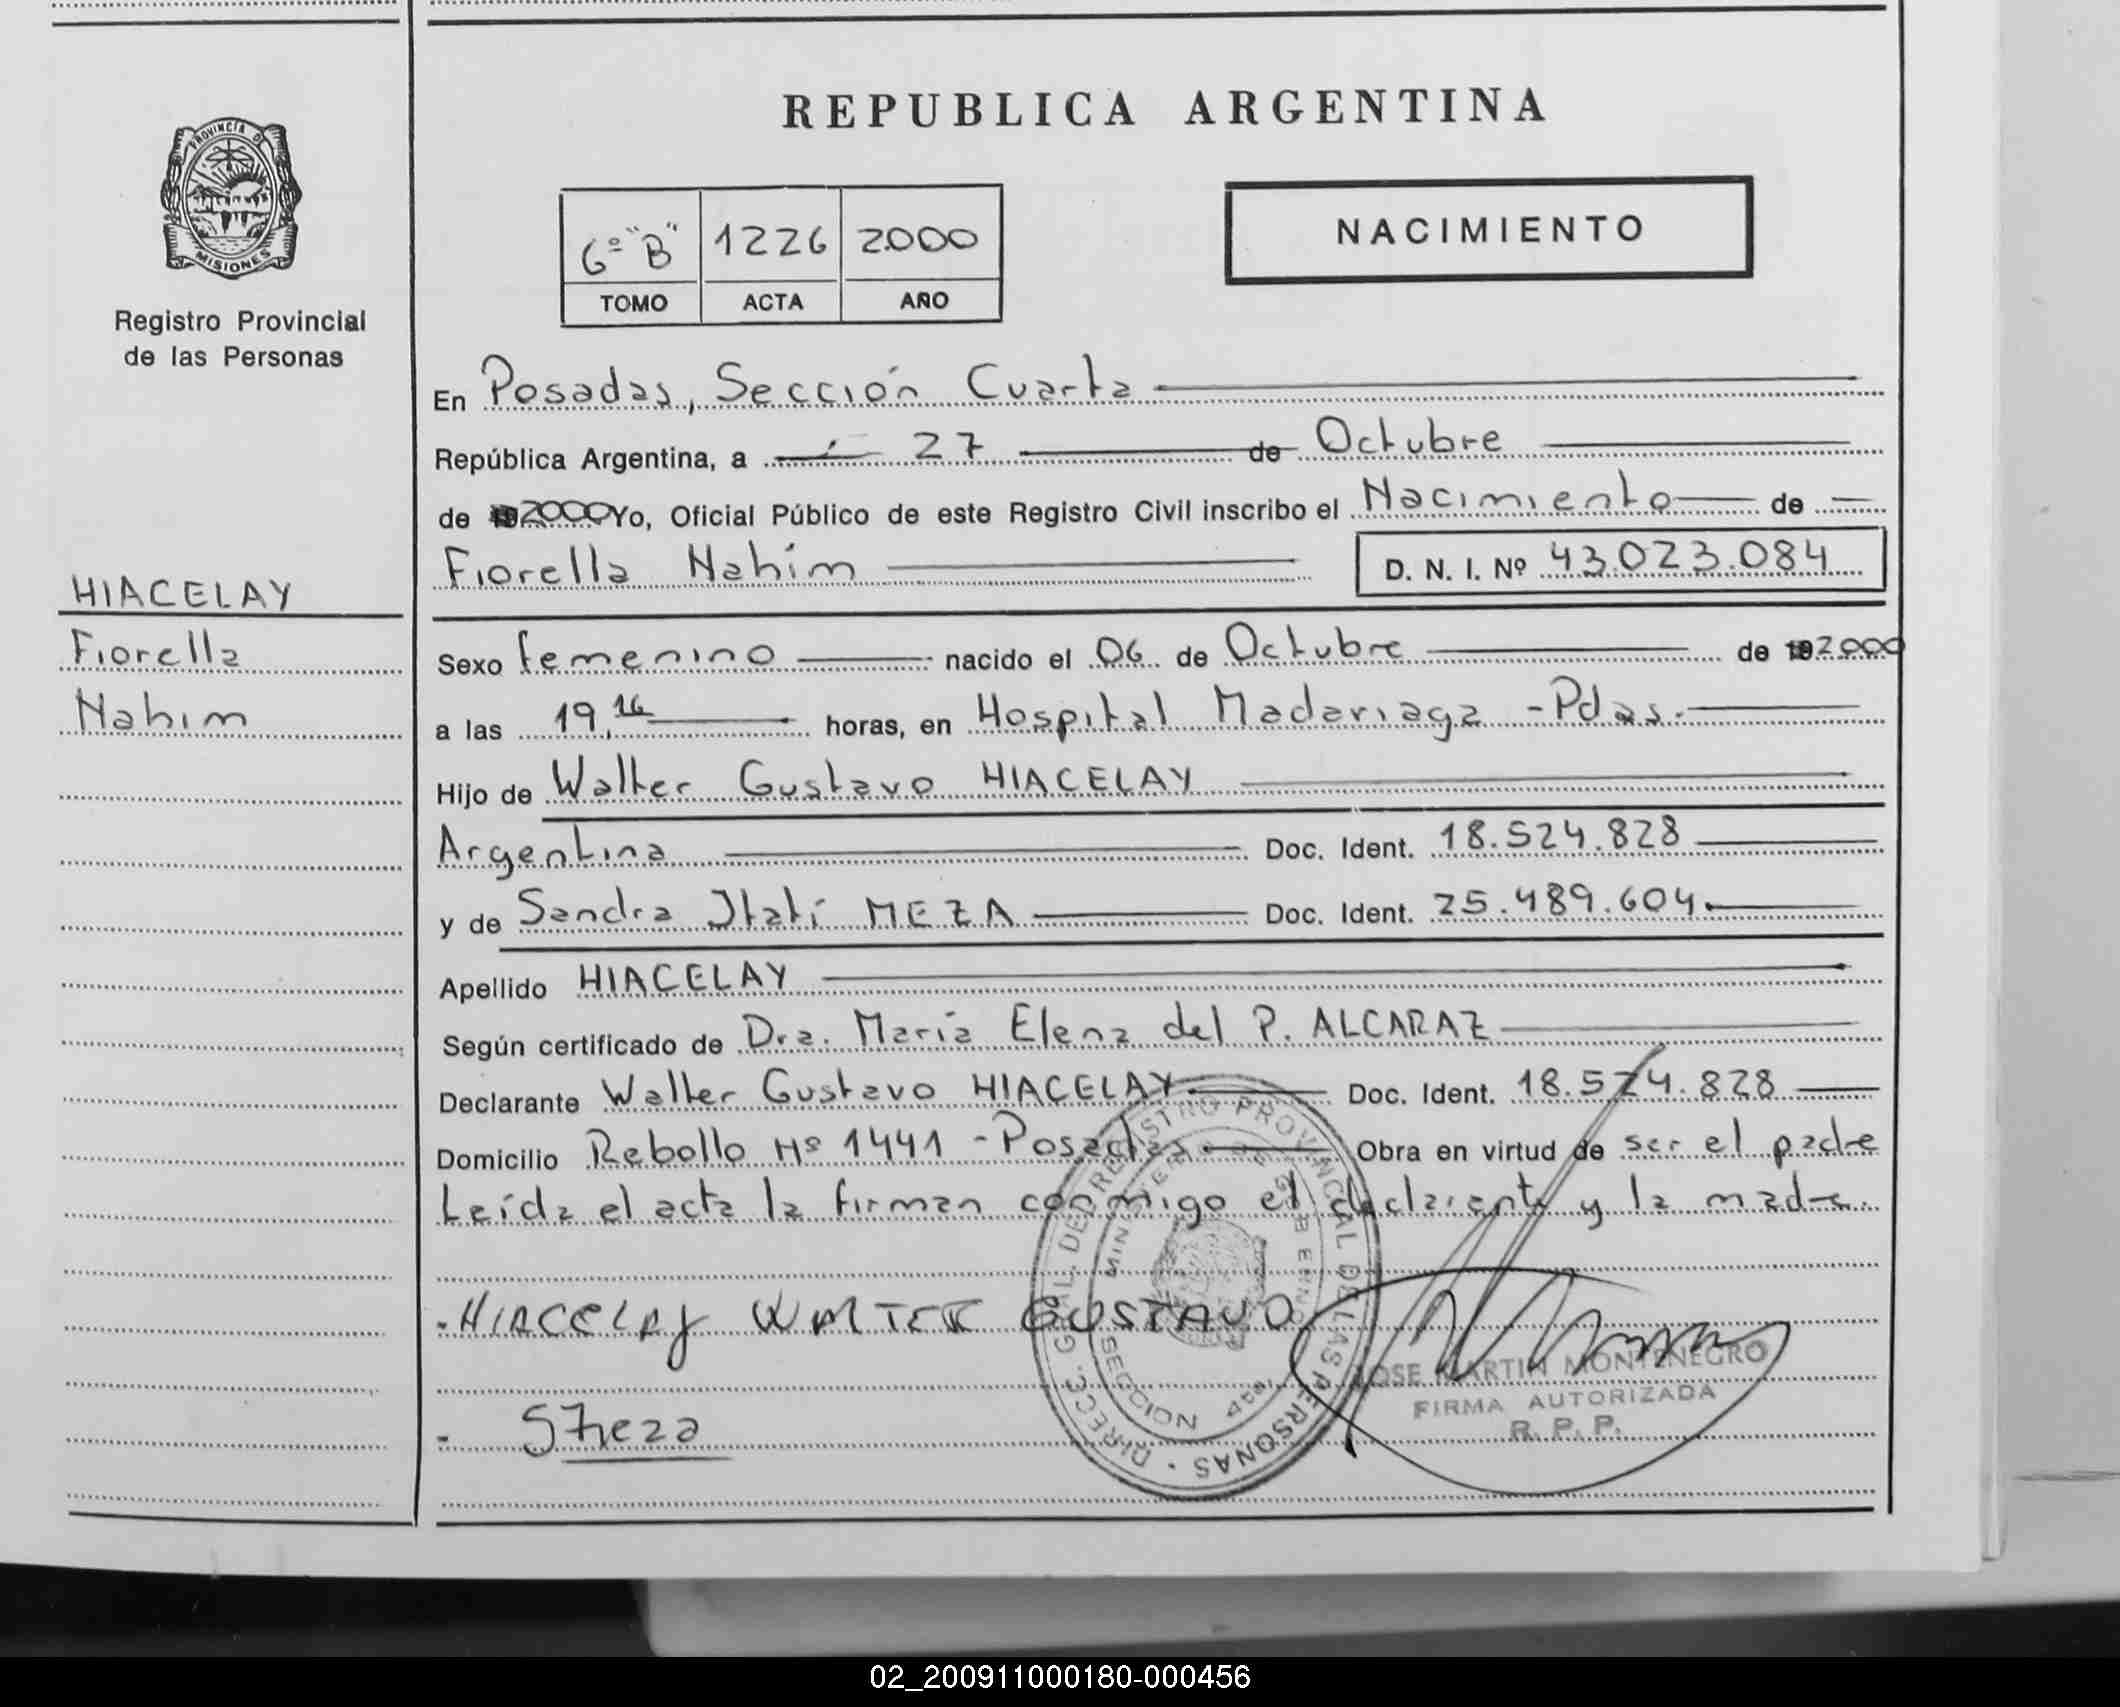 REPUBLICA ARGENTINA
PROVINCIA DE
MISIONES
Registro Provincial
de las Personas
6º "B" 1226 2000
TOMO ACTA AÑO
NACIMIENTO
En Posadas, Sección Cuarta
República Argentina, a 27 de Octubre
de 2000 Yo, Oficial Público de este Registro Civil inscribo el Nacimiento de
Fiorella Nahim D. N. I. Nº 43.023.084
HIACELAY
Fiorella
Nahim
Sexo femenino nacido el 06 de Octubre de 192000
a las 19,16 horas, en Hospital Madariaga - Pdas.
Hijo de Walter Gustavo HIACELAY
Argentina Doc. Ident. 18.524.828
y de Sandra Itatí MEZA Doc. Ident. 25.489.604
Apellido HIACELAY
Según certificado de Dra. María Elena del P. ALCARAZ
Declarante Walter Gustavo HIACELAY Doc. Ident. 18.524.828
Domicilio Rebollo Nº 1441 - Posadas Obra en virtud de ser el padre
Leída el acta la firman conmigo el declarante y la madre.
HIACELAY WALTER GUSTAVO
SMeza
DIRECC. GRAL. DEL REGISTRO PROVINCIAL DE LAS PERSONAS
MINISTERIO DE GOBIERNO
SECCION 4ta.
JOSE MARTIN MONTENEGRO
FIRMA AUTORIZADA
R. P. P.
02_200911000180-000456